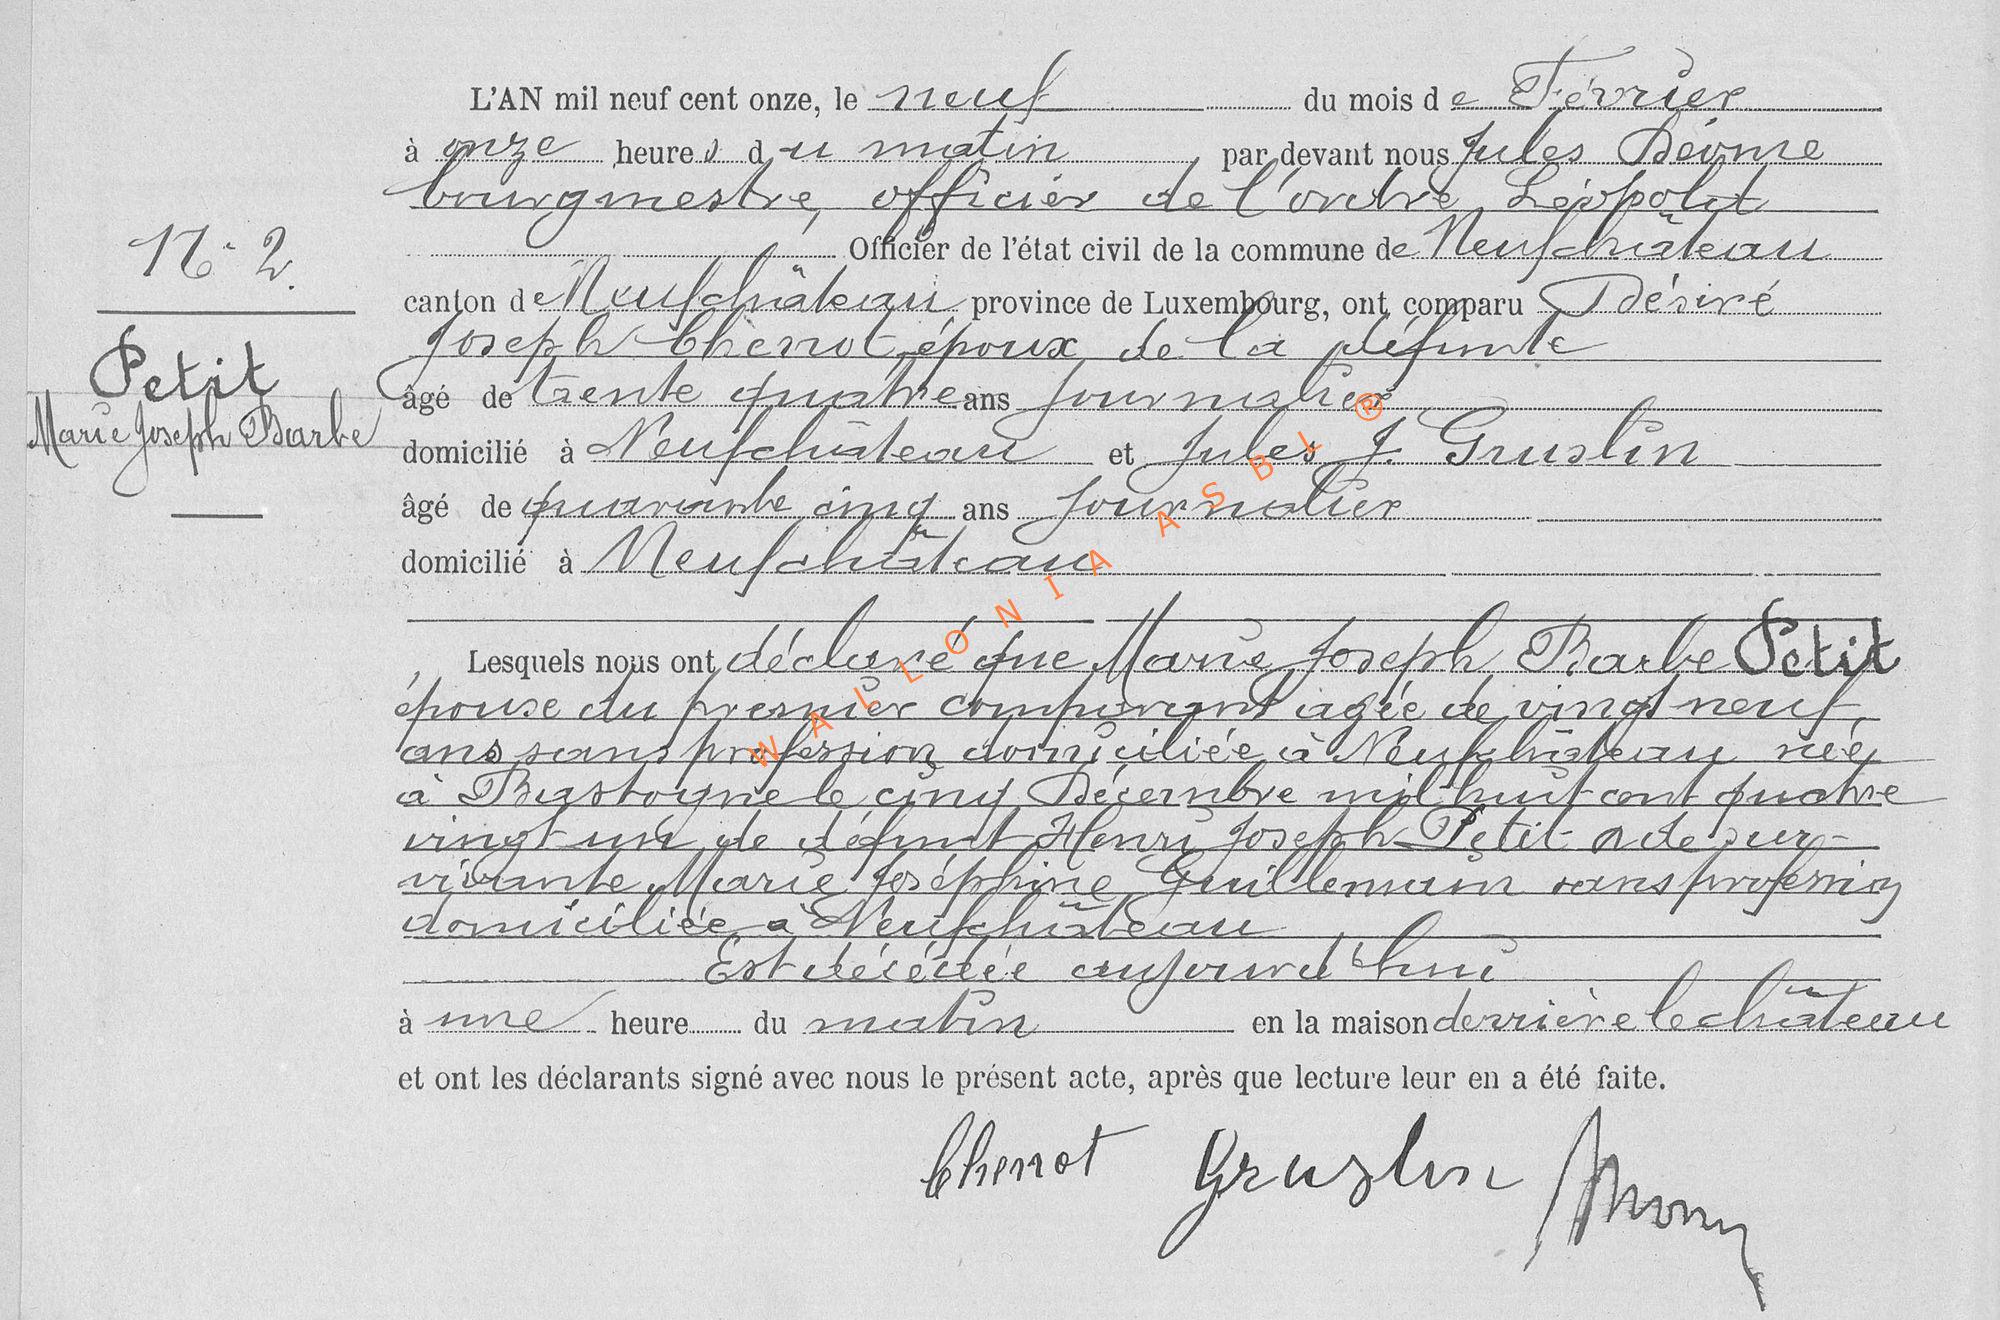 L'AN mil neuf cent onze, le neuf du mois de Février
à onze heures du matin par devant nous Jules
bourgmestre, officier de l'ordre Léopold
N° 2.
Officier de l'état civil de la commune de Neufchâteau
canton de Neufchâteau province de Luxembourg, ont comparu Désiré
Joseph Chenot, époux de la défunte
Petit
Marie Joseph Barbe
âgé de trente quatre ans journalier
domicilié à Neufchâteau et Jules J. Gruslin
âgé de quarante cinq ans journalier
domicilié à Neufchâteau
Lesquels nous ont déclaré que Marie Joseph Barbe Petit
épouse du premier comparant agée de vingt neuf
ans sans profession domiciliée à Neufchâteau née
à Bastogne le cinq Décembre mil huit cent quatre
vingt un de défunt Henri Joseph Petit & de sur-
vivante Marie Joséphine Guillemain sans profession
domiciliée à Neufchâteau
Est décédée aujourd'hui
à une heure du matin en la maison derrière le château
et ont les déclarants signé avec nous le présent acte, après que lecture leur en a été faite.
Chenot Gruslin
WALLONIA ASBL ®